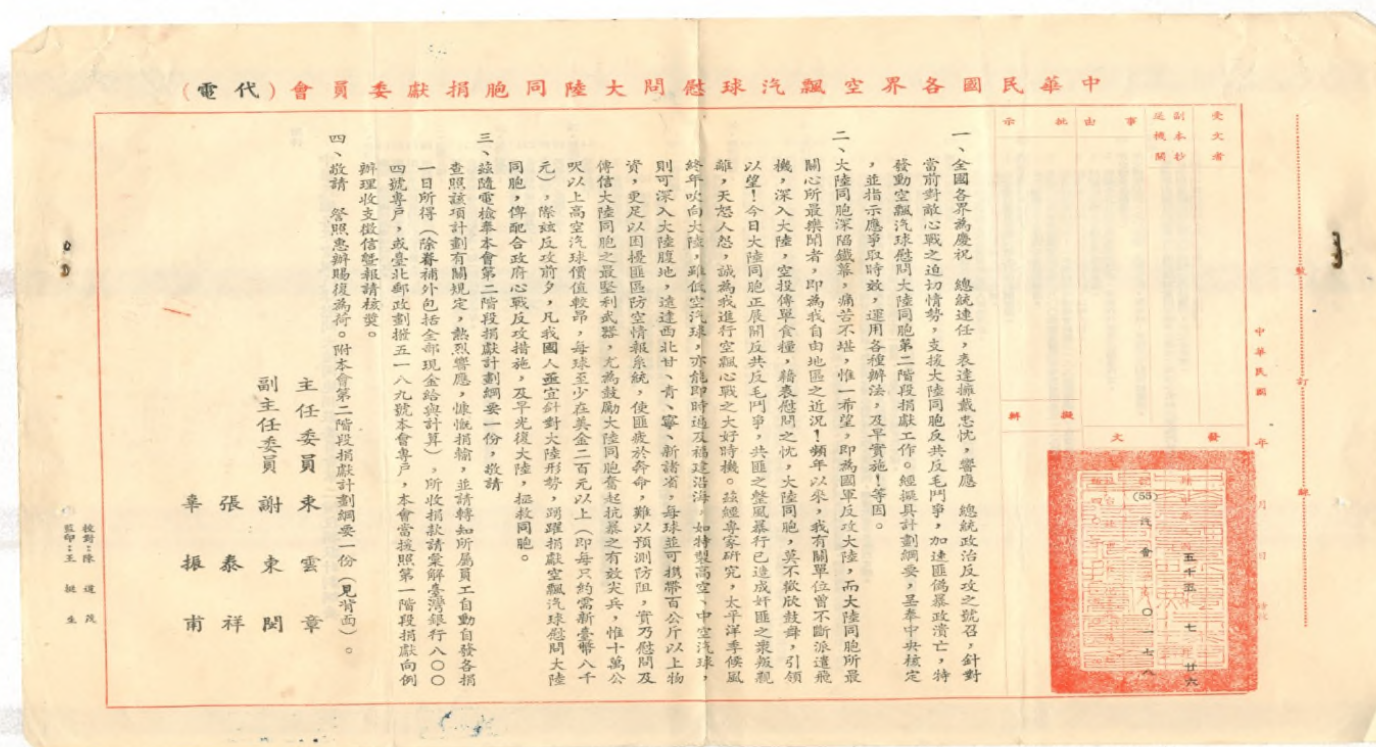 中華民國各界空飄汽球慰問大陸同胞捐獻委員會(代電)
受文者
副本抄送機關
事由
批示
擬辦
發文
中華民國 年 月 日
裝 訂 線
(55)
五十五 七 廿六
〇一七八
一、全國各界為慶祝 總統連任,表達擁戴忠忱,響應 總統政治反攻之號召,針對
當前對敵心戰之迫切情勢,支援大陸同胞反共反毛鬥爭,加速匪偽暴政潰亡,特
發動空飄汽球慰問大陸同胞第二階段捐獻工作。經擬具計劃綱要,呈奉中央核定
,並指示應爭取時效,運用各種辦法,及早實施!等因。
二、大陸同胞深陷鐵幕,痛苦不堪,惟一希望,即為國軍反攻大陸,而大陸同胞所最
關心所最樂聞者,即為我自由地區之近況!頻年以來,我有關單位曾不斷派遣飛
機,深入大陸,空投傳單食糧,藉表慰問之忱,大陸同胞,莫不歡欣鼓舞,引領
以望!今日大陸同胞正展開反共反毛鬥爭,共匪之整風暴行已造成奸匪之眾叛親
離,天怒人怨,誠為我進行空飄心戰之大好時機。茲經專家研究,太平洋季候風
終年吹向大陸,雖低空汽球,亦能即時遍及福建沿海,如特製高空、中空汽球,
則可深入大陸腹地,遠達西北甘、青、寧、新諸省,每球並可携帶百公斤以上物
資,更足以困擾匪區防空情報系統,使匪疲於奔命,難以預測防阻,實乃慰問及
傳信大陸同胞之最堅利武器,尤為鼓勵大陸同胞奮起抗暴之有效尖兵,惟十萬公
呎以上高空汽球價值較昂,每球至少在美金二百元以上(即每只約需新臺幣八千
元),際茲反攻前夕,凡我國人亟宜針對大陸形勢,踴躍捐獻空飄汽球慰問大陸
同胞,俾配合政府心戰反攻措施,及早光復大陸,拯救同胞。
三、茲隨電檢奉本會第二階段捐獻計劃綱要一份,敬請
查照該項計劃有關規定,熱烈響應,慷慨捐輸,並請轉知所屬員工自動自發各捐
一日所得(除眷補外包括全部現金給與計算),所收捐款請彙解臺灣銀行八〇〇
四號專戶,或臺北郵政劃撥五一八九號本會專戶,本會當援照第一階段捐獻向例
辦理收支徵信暨報請核獎。
四、敬請 督照惠辦賜復為荷。附本會第二階段捐獻計劃綱要一份(見背面)。
主任委員 束雲章
副主任委員 謝東閔
張泰祥
辜振甫
校對:陳道茂
監印:王挺生